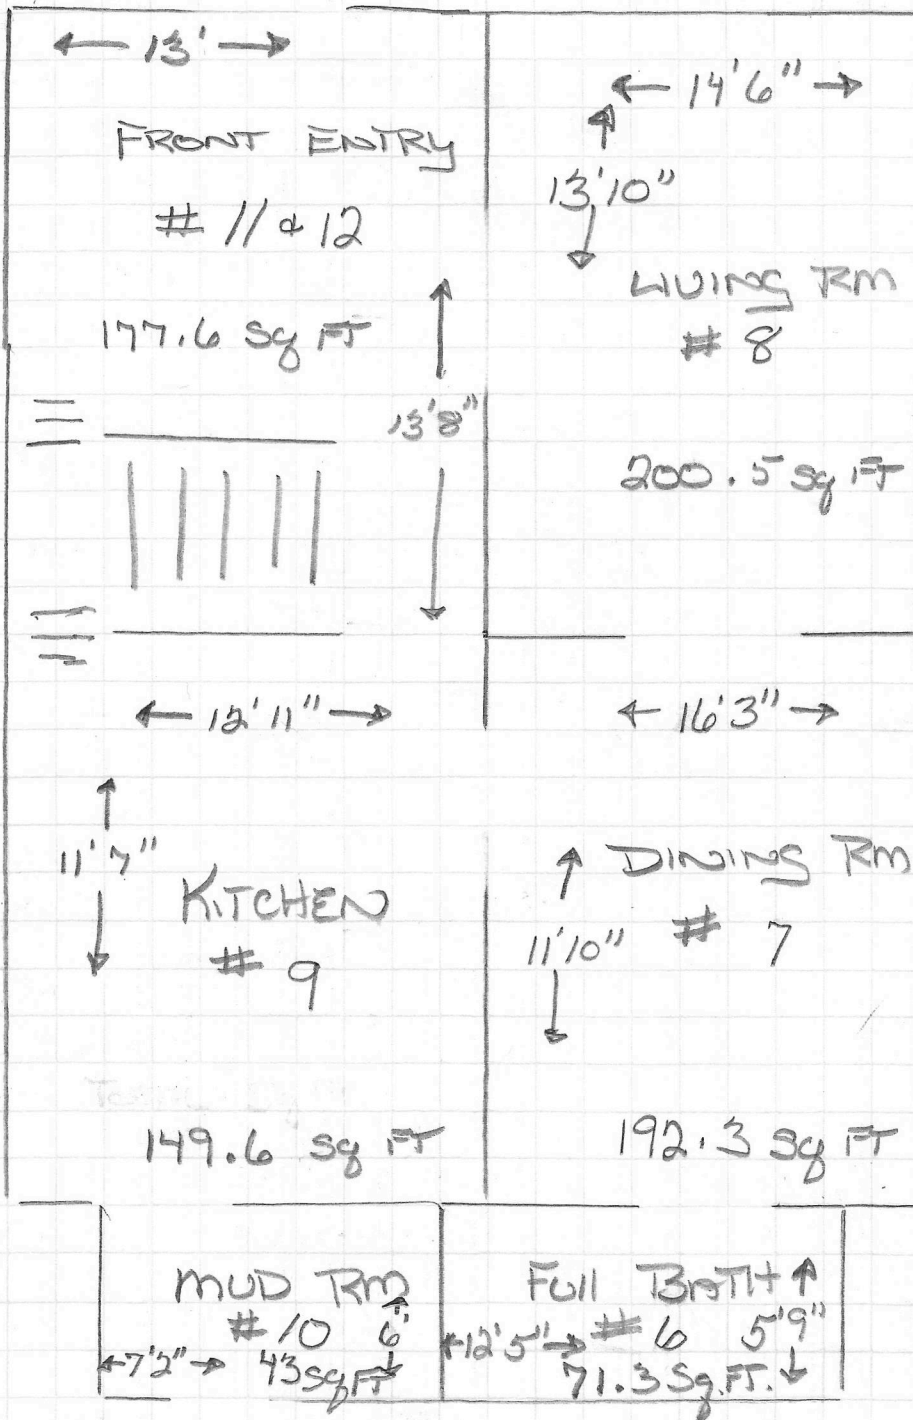 13'
FRONT ENTRY
# 11 & 12
177.6 Sq FT
13'8"
14'6"
13'10"
LIVING RM
# 8
200.5 Sq FT
12'11"
11'7"
KITCHEN
# 9
149.6 Sq FT
16'3"
DINING RM
# 7
11'10"
192.3 Sq FT
MUD RM
# 10 6'
7'2" 43 Sq FT
FUll BATH
12'5" # 6 5'9"
71.3 Sq. FT.